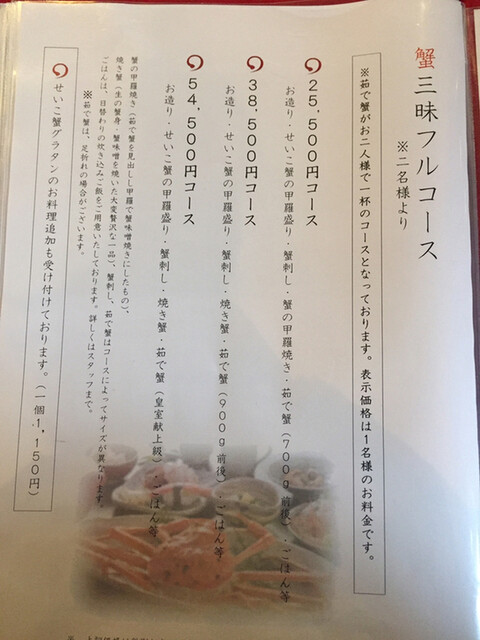 蟹三昧フルコース
※二名様より
※茹で蟹がお二人様で一杯のコースとなっております。表示価格は1名様のお料金です。
25,500円コース
お造り・せいこ蟹の甲羅盛り・蟹刺し・蟹の甲羅焼き・茹で蟹(700g前後)・ごはん等
38,500円コース
お造り・せいこ蟹の甲羅盛り・蟹刺し・焼き蟹・茹で蟹(900g前後)・ごはん等
54,500円コース
お造り・せいこ蟹の甲羅盛り・蟹刺し・焼き蟹・茹で蟹(皇室献上級)・ごはん等
蟹の甲羅焼き(茹で蟹を見出しし甲羅で蟹味噌焼きにしたもの)、
焼き蟹(生の蟹身・蟹味噌を焼いた大変贅沢な一品)、蟹刺し、茹で蟹はコースによってサイズが異なります。
ごはんは、日替わりの炊き込みご飯をご用意いたしております。詳しくはスタッフまで。
※茹で蟹は、足折れの場合がございます。
せいこ蟹グラタンのお料理追加も受け付けております。(一個1,150円)